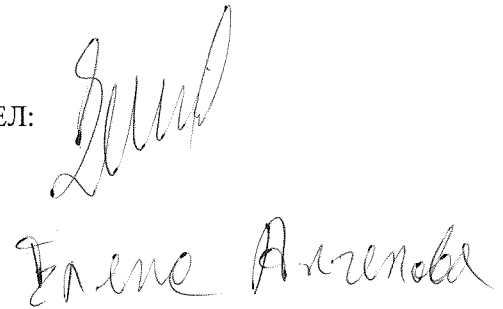 ЕЛ:
Елена Ангелова